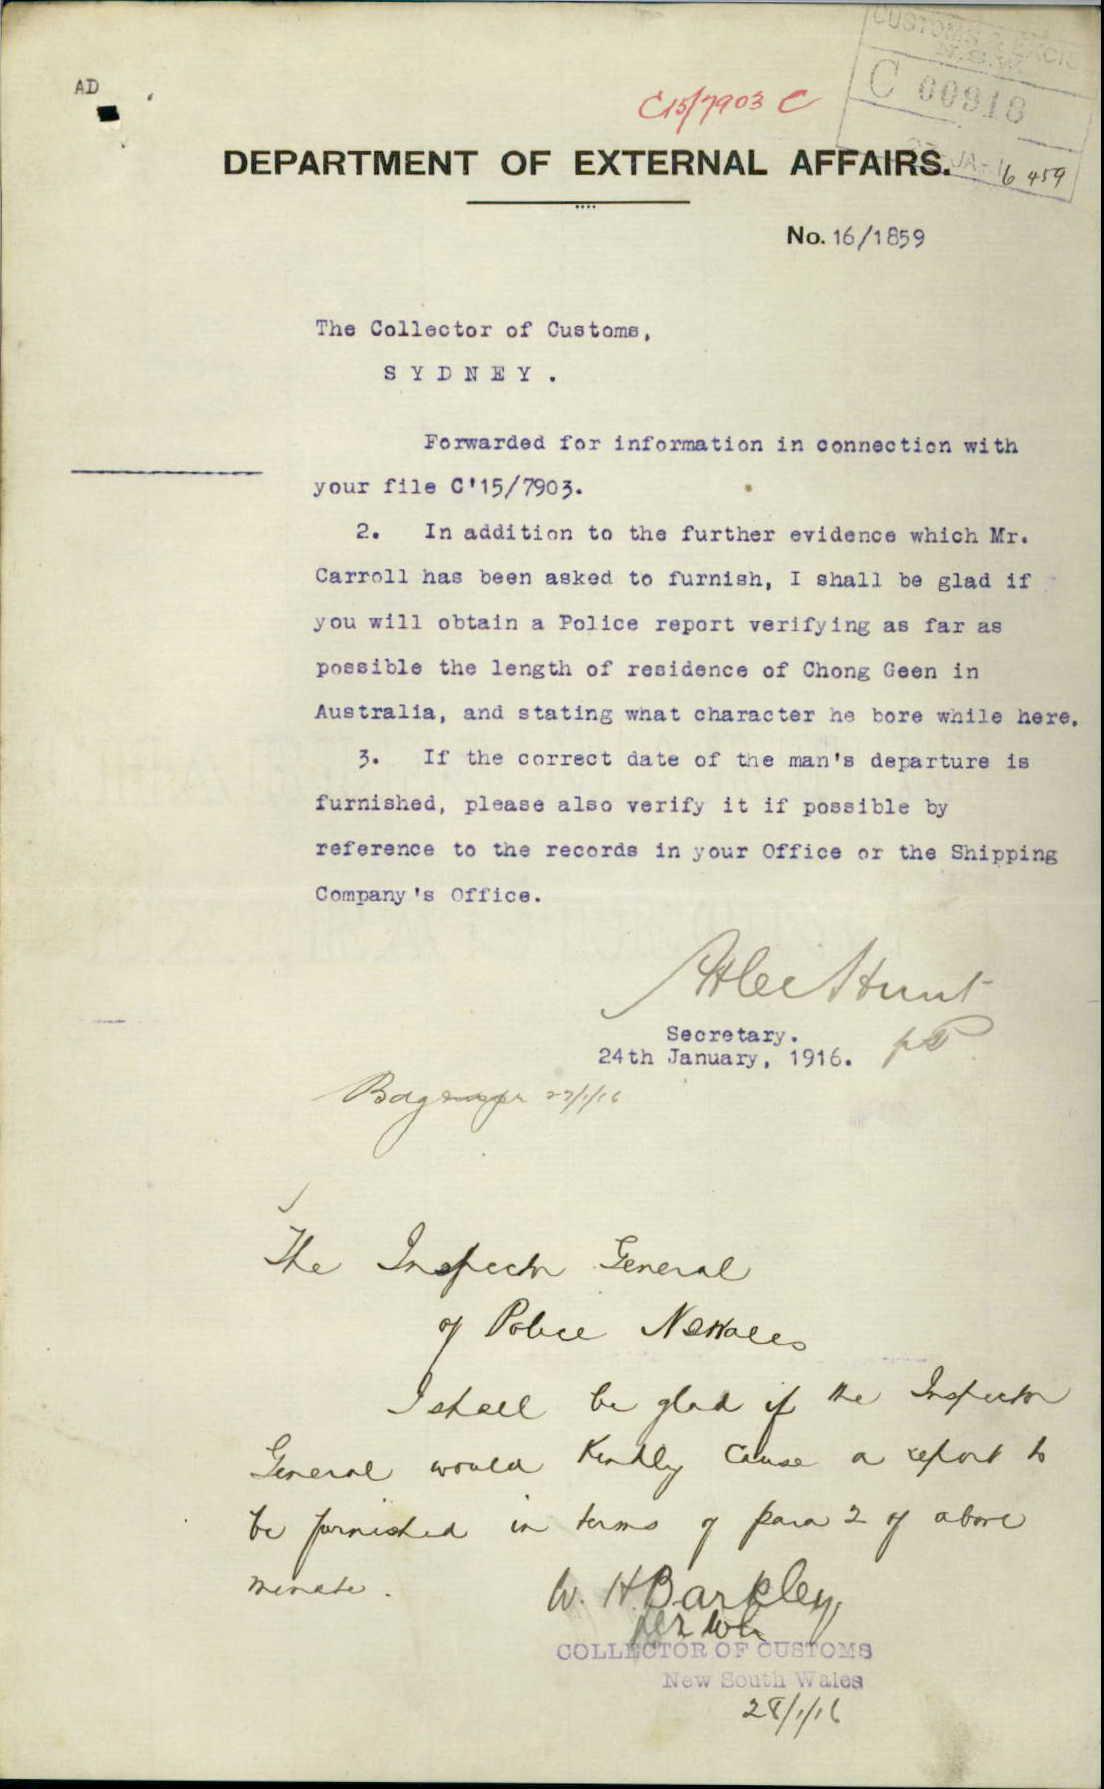 AD
C15/7903 C
CUSTOMS & EXCISE
N.S.W.
C 00918
JA
6 459
DEPARTMENT OF EXTERNAL AFFAIRS.
No. 16/1859
The Collector of Customs,
SYDNEY.
Forwarded for information in connection with
your file C'15/7903.
2. In addition to the further evidence which Mr.
Carroll has been asked to furnish, I shall be glad if
you will obtain a Police report verifying as far as
possible the length of residence of Chong Geen in
Australia, and stating what character he bore while here.
3. If the correct date of the man's departure is
furnished, please also verify it if possible by
reference to the records in your Office or the Shipping
Company's Office.
Atlee Hunt
Secretary.
24th January, 1916.
The Inspector General
of Police NSWales
I shall be glad if the Inspector
General would kindly cause a report to
be furnished in terms of para 2 of above
minute.
W. H Barkley
COLLECTOR OF CUSTOMS
New South Wales
28/1/16